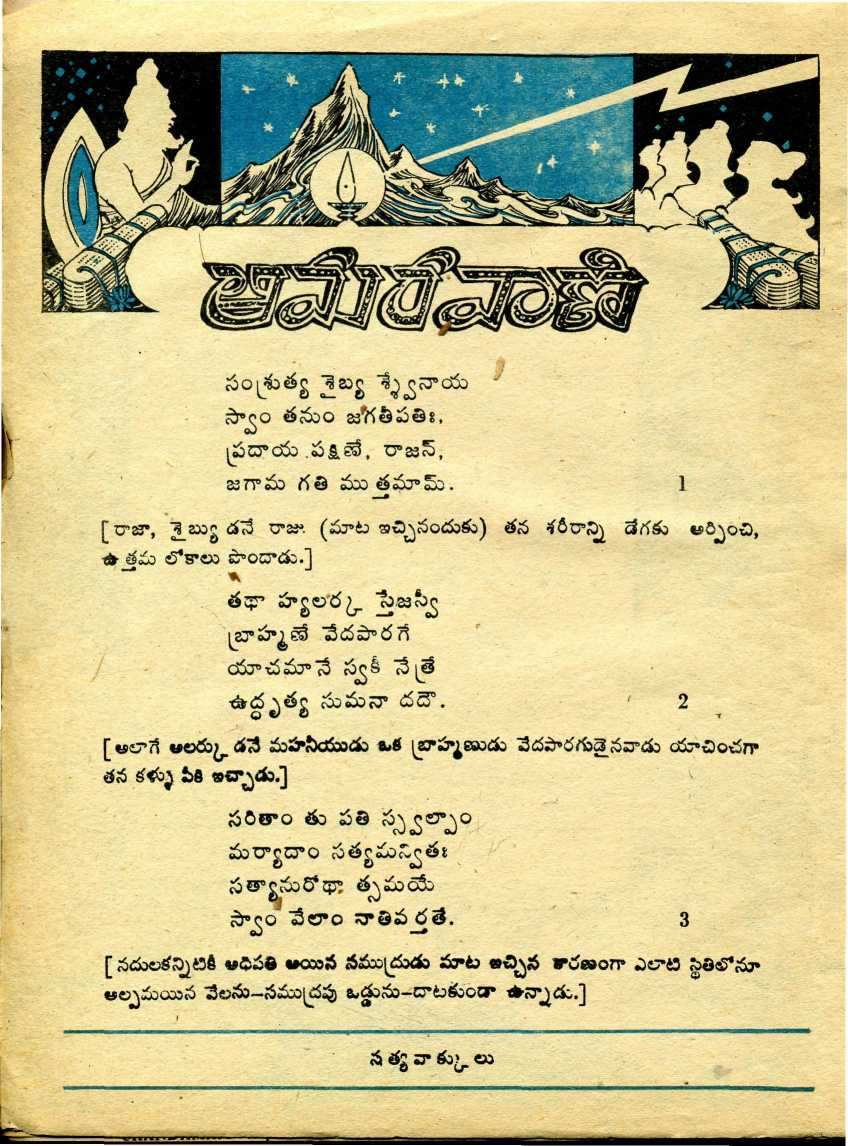 అమరవాణి
సంశ్రుత్య శైబ్య శ్శ్యేనాయ
స్వాం తనుం జగతీపతిః,
ప్రదాయ పక్షిణే, రాజన్,
జగామ గతి ముత్తమామ్. 1
[రాజా, శైబ్యుడనే రాజు (మాట ఇచ్చినందుకు) తన శరీరాన్ని డేగకు అర్పించి,
ఉత్తమ లోకాలు పొందాడు.]
తథా హ్యలర్క స్తేజస్వీ
బ్రాహ్మణే వేదపారగే
యాచమానే స్వకీ నేత్రే
ఉద్ధృత్య సుమనా దదౌ. 2
[అలాగే అలర్కుడనే మహనీయుడు ఒక బ్రాహ్మణుడు వేదపారగుడైనవాడు యాచించగా
తన కళ్ళు పీకి ఇచ్చాడు.]
సరితాం తు పతి స్స్వల్పాం
మర్యాదాం సత్యమన్వితః
సత్యానురోధా త్సమయే
స్వాం వేలాం నాతివర్తతే. 3
[నదులకన్నిటికీ అధిపతి అయిన సముద్రుడు మాట ఇచ్చిన కారణంగా ఎలాటి స్థితిలోనూ
అల్పమయిన వేలను—సముద్రపు ఒడ్డును—దాటకుండా ఉన్నాడు.]
సత్యవాక్కులు